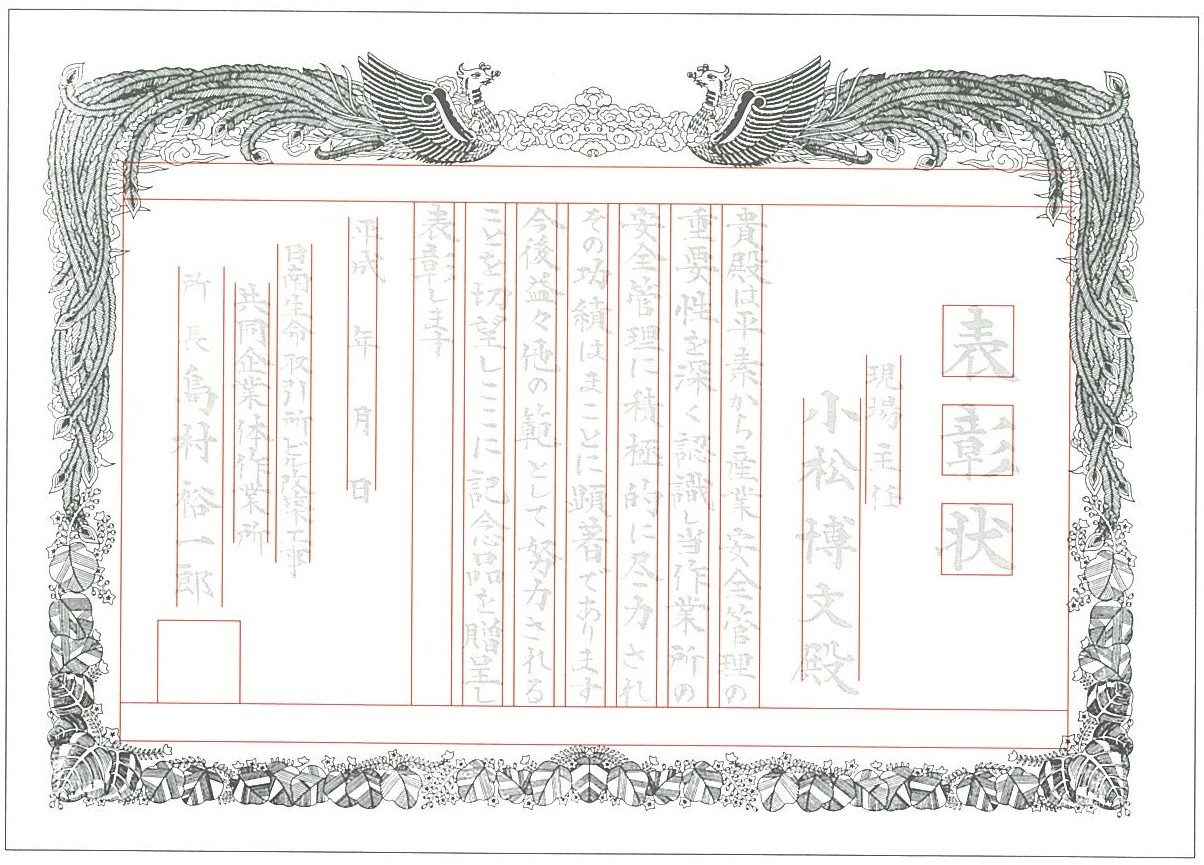 表彰状
現場主任
小松博文殿
貴殿は平素から産業安全管理の
重要性を深く認識し当作業所の
安全管理に積極的に尽力され
その功績はまことに顕著であります
今後益々他の範として努力される
ことを切望しここに記念品を贈呈し
表彰します
平成 年 月 日
日南生命取引所ビル改築工事
共同企業体作業所
所長 島村裕一郎